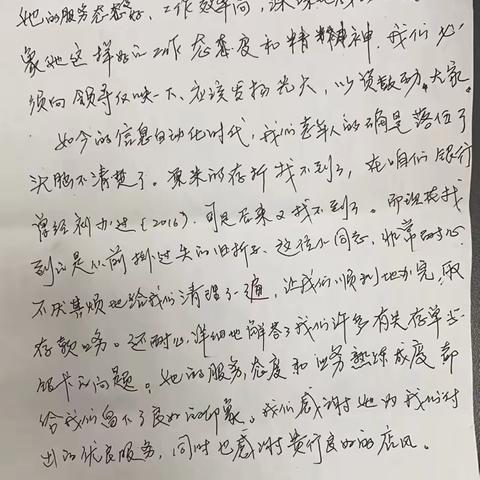 她的服务态度好、工作效率高，深深
象她这样好的工作态度和精神，我们必
须向领导反映一下、应该发扬光大，以资鼓励大家。
如今的信息自动化时代，我们老年人的确是落伍了
头脑不清楚了。原来的存折找不到了，在咱们银行
曾经补办过（2016）。可是后来又找不到了。而现在找
到的是以前挂过失的旧折子。这位小同志，非常耐心
不厌其烦地给我们清理了一遍，让我们顺利地办完取
存款业务。还耐心详细地解答了我们许多有关存单、
银卡的问题。她的服务态度和业务熟练成度都
给我们留下了良好的印象。我们感谢她为我们付
出的优良服务，同时也感谢贵行良好的店风。